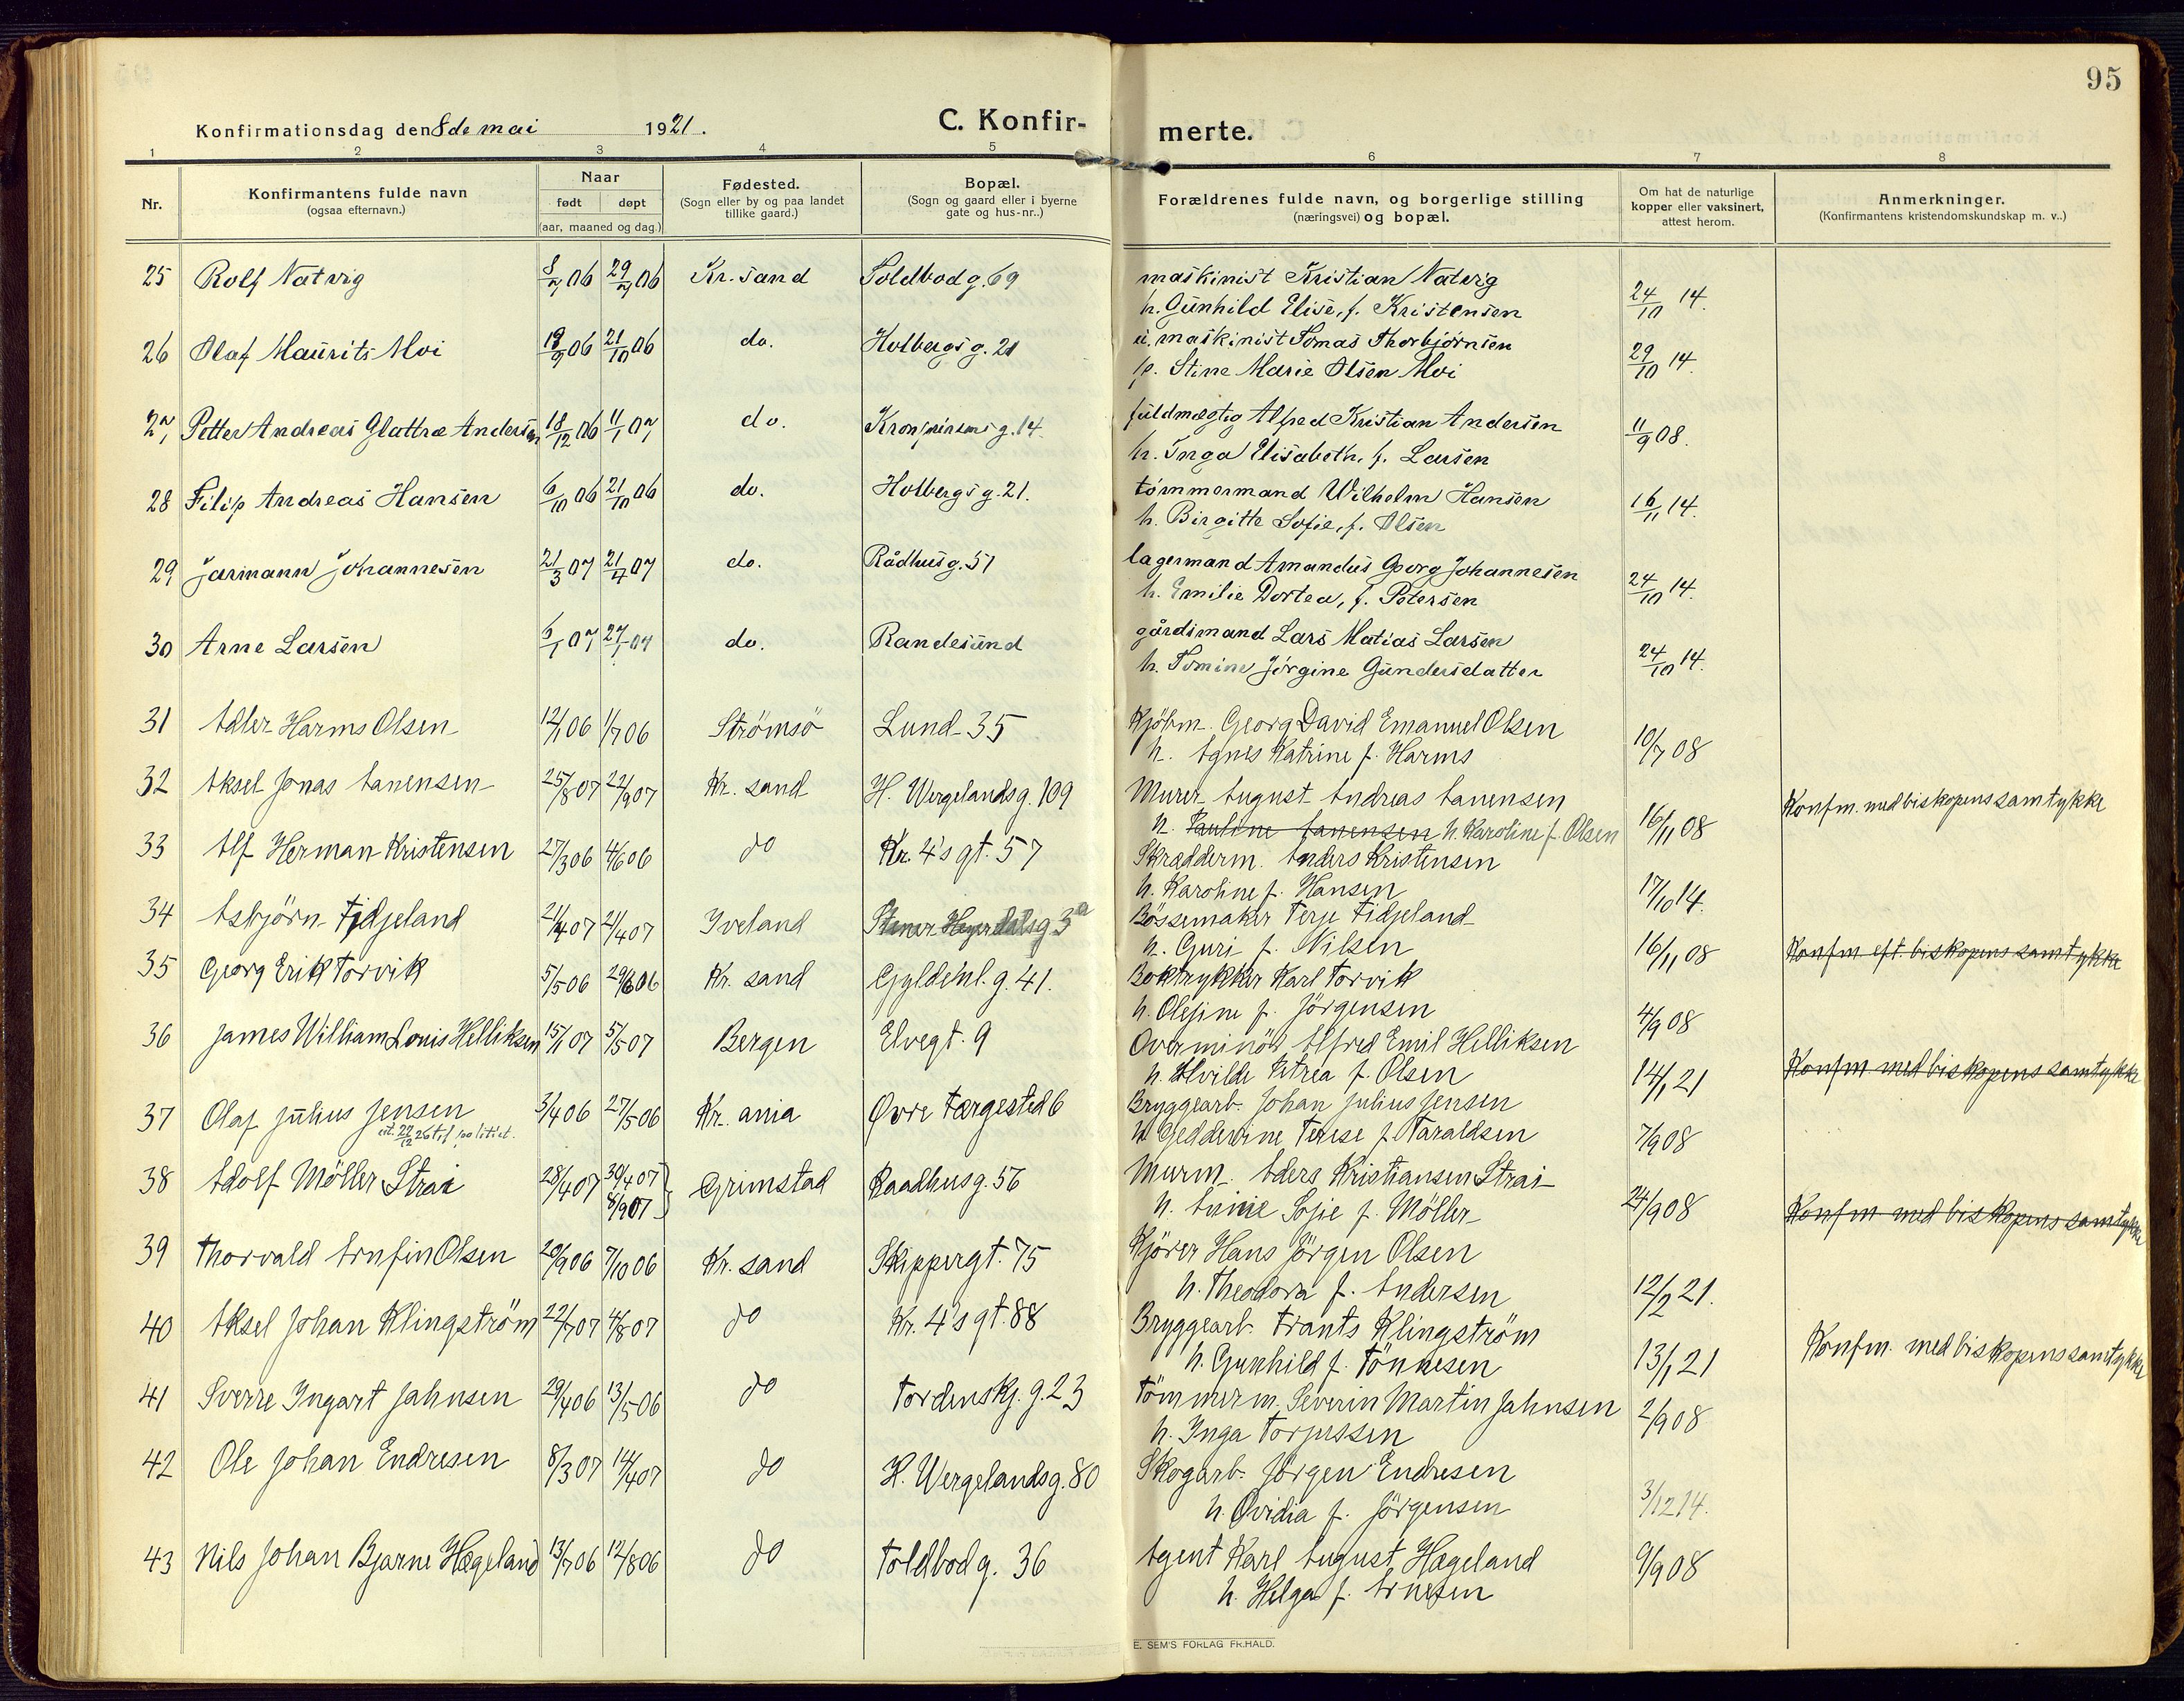 95
Konfirmationsdag den 8de mai 1921. C. Konfirmerte.
1 2 3 4 5 6 7 8
Nr. Konfirmantens fulde navn (ogsaa efternavn.) Naar født døpt (aar, maaned og dag.) Fødested. (Sogn eller by og paa landet tillike gaard.) Bopæl. (Sogn og gaard eller i byerne gate og hus-nr..) Forældrenes fulde navn, og borgerlige stilling (næringsvei) og bopæl. Om hat de naturlige kopper eller vaksinert, attest herom. Anmerkninger. (Konfirmantens kristendomskundskap m. v..)
25 Rolf Natvig 8/7 06 29/7 06 Kr. sand Toldbodg. 69 maskinist Kristian Natvig
h. Gunhild Elise, f. Kristensen 24/10 14.
26 Olaf Maurits Moi 19/9 06 21/10 06 do. Holbergsg. 21 u. maskinist Tomas Thorbjørnsen
p. Stine Marie Olsen Moi 29/10 14.
27 Petter Andreas Glattre Andersen 18/12 06 11/1 07 do. Kronprinsensg. 14. fuldmægtig Alfred Kristian Andersen
h. Inga Elisabeth, f. Larsen 11/9 08.
28 Filip Andreas Hansen 6/10 06 21/10 06 do. Holbergsg. 21. tømmermand Wilhelm Hansen
h. Birgitte Sofie, f. Olsen 16/11 14.
29 Jarmann Johannesen 21/3 07 21/4 07 do. Rådhusg. 51 lagermand Amandus Georg Johannesen
h. Emilie Dortea, f. Petersen 24/10 14.
30 Arne Larsen 6/1 07 27/1 07 do. Randesund gårdsmand Lars Matias Larsen
h. Tomine Jørgine Gundersdatter 24/10 14.
31 Adler Harms Olsen 12/1 06 1/7 06 Strömsö Lund 35 Kjöbm. Georg David Emanuel Olsen
h. Agnes Katrine f. Harms 10/7 08
32 Aksel Jonas Aanensen 25/8 07 22/9 07 Kr. sand H. Wergelandsg. 109 Murer August Andreas Aanensen Konfm. med biskopens samtykke
h. Pauline Aanensen h Karoline f. Olsen 16/11 08
33 Alf Herman Kristensen 27/3 06 4/6 06 do Kr. 4's gt. 57 Skrædderm. Anders Kristensen
h. Karoline f. Hansen 17/10 14.
34 Asbjörn Tidjeland 21/4 07 21/4 07 Iveland Stener Heyerdalsg 3a Bössemaker Terje Tidjeland
h. Guri f. Nilsen 16/11 08 Konfm eft. biskopens samtykke
35 Georg Erik Torvik 5/5 06 29/6 06 Kr. sand Gyldenl. g. 41. Boktrykker Karl Torvik
h. Olefine f. Jörgensen 4/9 08
36 James William Louis Helliksen 15/1 07 5/5 07 Bergen Elvegt. 9 Overminör Alfred Emil Helliksen
h. Alvilde Petrea f. Olsen 14/1 21 Konfm. med biskopens samtykke
37 Olaf Julius Jensen 3/4 06 27/5 06 Kr. ania Øvre Færgested 6 Bryggearb. Johan Julius Jensen
att. 22/12 26 til politiet.
h. Geddervine Terese f. Taraldsen 7/9 08
38 Adolf Möller Strai 28/4 07 30/4 07 8/9 07 Grimstad Raadhusg. 56 Murm. Aders Kristiansen Strai
h. Annie Sofie f. Möller 24/9 08 Konfm med biskopens samtykke
39 Thorvald Arnfin Olsen 20/9 06 7/10 06 Kr. sand Skippergt. 75 Kjörer Hans Jörgen Olsen
h. Theodora f. Andersen 12/2 21.
40 Aksel Johan Klingström 22/7 07 4/8 07 do Kr. 4's gt. 88 Bryggearb. Frants Klingström
h. Gunhild f. Tönnesen 13/1 21 Konfm. med biskopens samtykke
41 Sverre Ingart Jahnsen 29/4 06 13/5 06 do Tordenskj. g. 23 Tömmerm. Severin Martin Jahnsen
h. Inga Torjussen 2/9 08
42 Ole Johan Endresen 8/3 07 14/4 07 do H. Wergelandsg. 80 Skogarb. Jörgen Endresen
h. Ovidia f. Jörgensen 3/12 14.
43 Nils Johan Bjarne Hægeland 13/7 06 12/8 06 do Toldbodg. 36 Agent Karl August Hægeland
h. Helga f. Arnesen 9/9 08
E. SEM'S FORLAG FR.HALD.